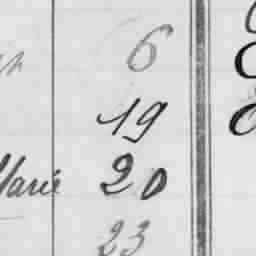 6
19
Marie 20
23